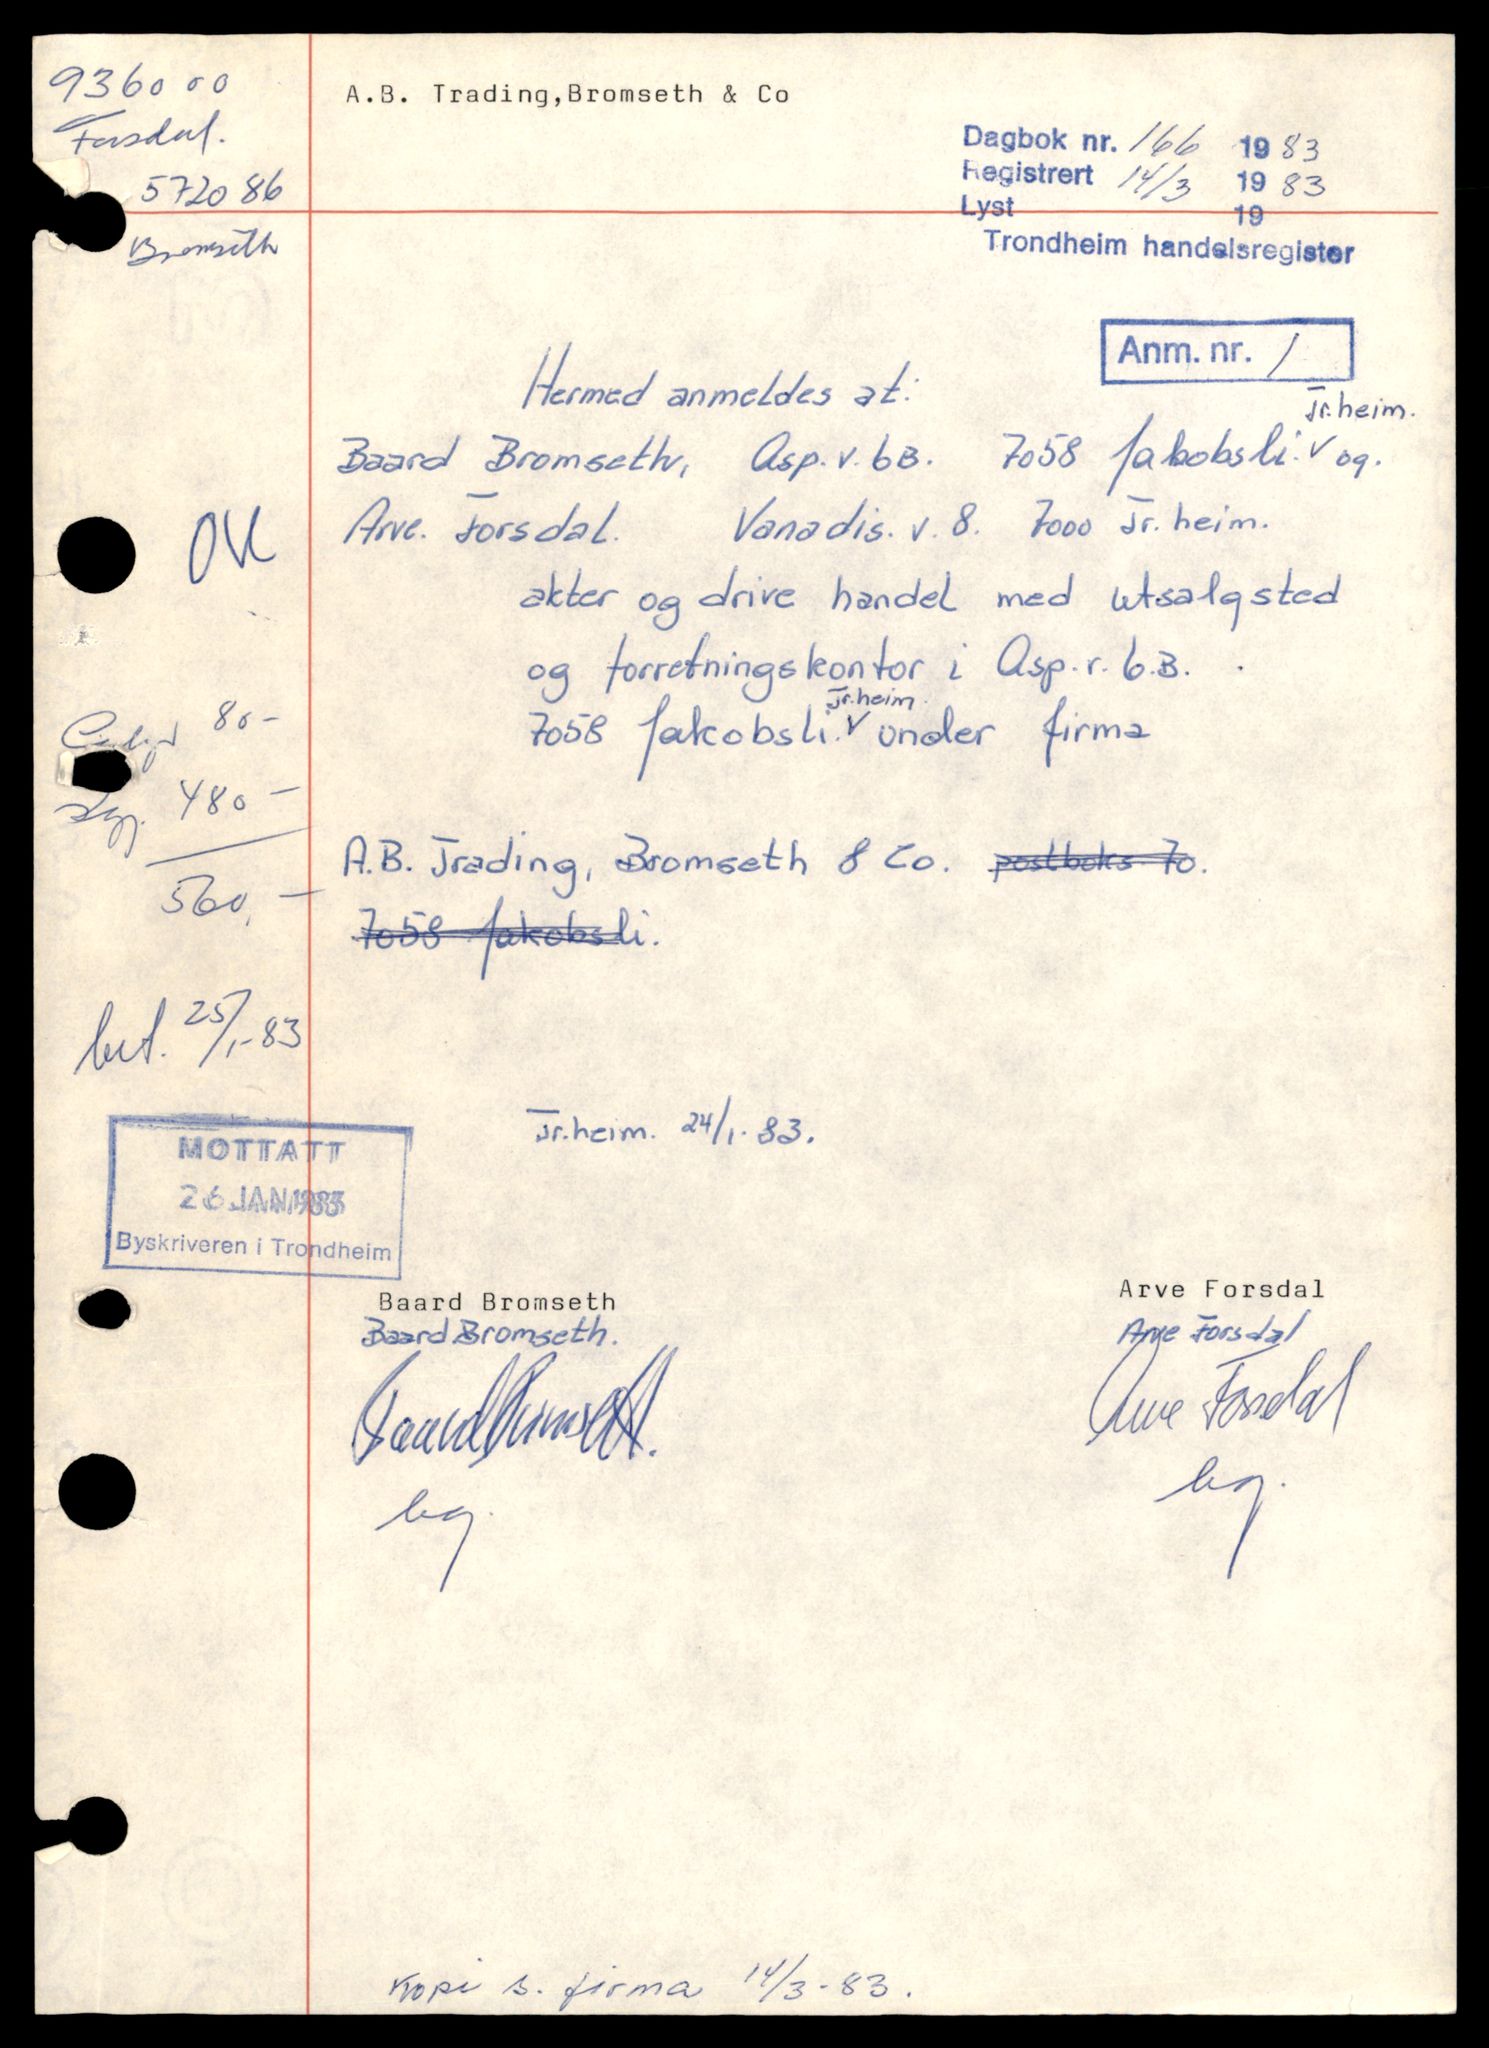 936000
Forsdal.
572086
Bromseth
A.B. Trading,Bromseth & Co
Dagbok nr. 166 1983
Registrert 14/3 1983
Lyst 19
Trondheim handelsregister
Anm. nr. 1
Hermed anmeldes at:
Tr.heim.
Baard Bromseth, Asp.v. 6B. 7058 Jakobsli. V og.
Arve. Forsdal. Vanadis. v. 8. 7000 Tr.heim.
OK
akter og drive handel med utsalgsted
og forretningskontor i Asp.v. 6.B.
Tr.heim.
7058 Jakobsli. V under firma
80-
480-
560,-
A.B. Trading, Bromseth & Co. postboks 70.
7058 Jakobsli.
bet. 25/1-83
Tr.heim. 24/1-83.
MOTTATT
26 JAN 1983
Byskriveren i Trondheim
Baard Bromseth
Baard Bromseth.
Baard Bromseth.
Arve Forsdal
Arve Forsdal
Arve Forsdal
Kopi s. firma 14/3-83.